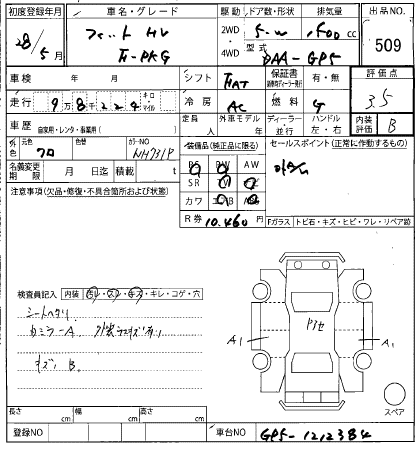 初度登録年月 車名・グレード 駆動 ドア数・形状 排気量 出品NO.
28/5月 フィット HV 2WD・4WD 5-W 1,500 cc 509
F-PKG 型式 DAA-GP5
車検 年 月 シフト FAT 保証書 有・無 評価点
走行 9万8千224 キロ・マイル 冷房 AC 燃料 G 3.5
車歴 自家用・レンタ・事業用( ) 定員 人 外車モデル 年 ディーラー・並行 ハンドル 左・右 内装評価 B
外色 元色 クロ 色替 カラーNO NH731P 装備品(純正品に限る) セールスポイント(正常に作動するもの)
PS PW AW
名義変更期限 月 日迄 積載 t SR
カワ
注意事項(欠品・修復・不具合箇所および状態) R券 10,460円 Fガラス トビ石・キズ・ヒビ・ワレ・リペア跡
検査員記入 内装 ヨレ・スレ・キズ・キレ・コゲ・穴
シートヘタリ
カミラーA
キズ B
A1 A1
スペア
長さ cm 幅 cm 高さ cm
登録NO 車台NO GP5-1212384